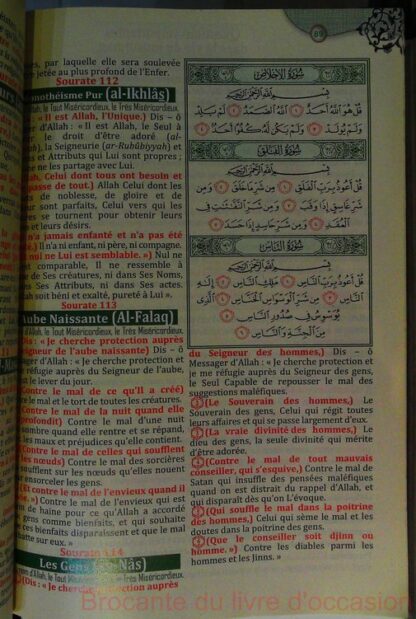 69
res, par laquelle elle sera soulevée
jetée au plus profond de l'Enfer.
Sourate 112
onothéisme Pur (al-Ikhlâs)
d'Allah, le Tout Miséricordieux, le Très Miséricordieux.
« Il est Allah, l'Unique.) Dis – ô
ager d'Allah : « Il est Allah, le Seul à
le droit d'être adoré (al-
), la Seigneurie (ar-Rubûbiyyah) et
s et Attributs qui Lui sont propres ;
ne les partage avec Lui.
ah, Celui dont tous ont besoin et
passe de tout.) Allah Celui dont les
de noblesse, de gloire et de
ur sont parfaits, Celui vers qui les
es se tournent pour obtenir leurs
et leurs désirs.
n'a jamais enfanté et n'a pas été
) Il n'a ni enfant, ni père, ni compagne.
nul ne Lui est semblable. ») Nul ne
ent comparable, Il ne ressemble à
de Ses créatures, ni dans Ses Noms,
es Attributs, ni dans Ses actes.
h soit béni et exalté, pureté à Lui ».
Sourate 113
Aube Naissante (Al-Falaq)
d'Allah, le Tout Miséricordieux, le Très Miséricordieux.
(Dis : « Je cherche protection auprès
igneur de l'aube naissante) Dis – ô
ager d'Allah : « Je cherche protection et
me réfugie auprès du Seigneur de l'aube,
u le lever du jour.
ontre le mal de ce qu'Il a créé)
e le mal et le tort de toutes les créatures.
Contre le mal de la nuit quand elle
profondit) Contre le mal d'une nuit
ombre quand elle rentre et se répand,
les maux et préjudices qu'elle contient.
Contre le mal de celles qui soufflent
les nœuds) Contre le mal des sorcières
oufflent sur les nœuds qu'elles nouent
r ensorceler les gens.
Et contre le mal de l'envieux quand il
») Contre le mal de l'envieux qui est
de haine pour ce qu'Allah a accordé
gens comme bienfaits, et qui souhaite
ces bienfaits disparaissent et que le mal
atte sur eux. »
Sourate 114
Les Gens (An-Nâs)
d'Allah, le Tout Miséricordieux, le Très Miséricordieux.
(Dis : « Je cherche protection auprès
سُورَةُ الإِخْلَاصِ
بِسْمِ اللَّهِ الرَّحْمَٰنِ الرَّحِيمِ
قُلْ هُوَ اللَّهُ أَحَدٌ ١ اللَّهُ الصَّمَدُ ٢ لَمْ يَلِدْ
وَلَمْ يُولَدْ ٣ وَلَمْ يَكُن لَّهُ كُفُوًا أَحَدٌ ٤
سُورَةُ الفَلَقِ
بِسْمِ اللَّهِ الرَّحْمَٰنِ الرَّحِيمِ
قُلْ أَعُوذُ بِرَبِّ الْفَلَقِ ١ مِن شَرِّ مَا خَلَقَ ٢ وَمِن
شَرِّ غَاسِقٍ إِذَا وَقَبَ ٣ وَمِن شَرِّ النَّفَّاثَاتِ فِي
الْعُقَدِ ٤ وَمِن شَرِّ حَاسِدٍ إِذَا حَسَدَ ٥
سُورَةُ النَّاسِ
بِسْمِ اللَّهِ الرَّحْمَٰنِ الرَّحِيمِ
قُلْ أَعُوذُ بِرَبِّ النَّاسِ ١ مَلِكِ النَّاسِ ٢ إِلَٰهِ
النَّاسِ ٣ مِن شَرِّ الْوَسْوَاسِ الْخَنَّاسِ ٤ الَّذِي
يُوَسْوِسُ فِي صُدُورِ النَّاسِ ٥
مِنَ الْجِنَّةِ وَالنَّاسِ ٦
du Seigneur des hommes,) Dis – ô
Messager d'Allah : « Je cherche protection et
me réfugie auprès du Seigneur des gens,
le Seul Capable de repousser le mal des
suggestions maléfiques.
2 (Le Souverain des hommes,) Le
Souverain des gens, Celui qui régit toutes
leurs affaires et qui se passe largement d'eux.
3 (La vraie divinité des hommes,) Le
dieu des gens, la seule divinité qui mérite
d'être adorée.
4 (Contre le mal de tout mauvais
conseiller, qui s'esquive,) Contre le mal de
Satan qui insuffle des pensées maléfiques
quand on est distrait du rappel d'Allah, et
qui disparaît dès qu'on L'évoque.
5 (Qui souffle mal dans la poitrine
des hommes,) Celui qui sème le mal et les
doutes dans la poitrine des gens.
6 (Que le conseiller soit djinn ou
homme. ») Contre les diables parmi les
hommes et les Jinns. »
Brocante du livre d'occasion